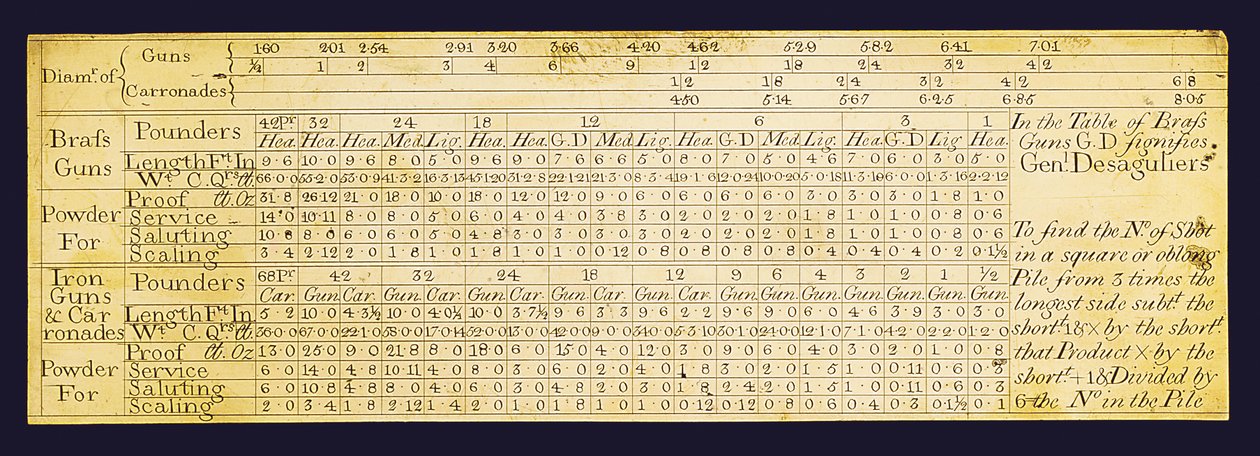 Diamr. of
Guns 1·60 2·01 2·54 2·91 3·20 3·66 4·20 4·62 5·2·9 5·8·2 6·41 7·0·1
½ 1 2 3 4 6 9 12 18 24 32 42
Carronades 12 18 24 32 42 68
4·50 5·14 5·67 6·2·5 6·85 8·05
Braſs Guns
Pounders 42Pr. 32 24 18 12 6 3 1
Hea. Hea. Hea. Med. Lig. Hea. Hea. G.D Med. Lig. Hea. G.D Med. Lig. Hea. G.D Lig Hea.
Length Ft. In 9·6 10·0 9·6 8·0 5·0 9·6 9·0 7·6 6·6 5·0 8·0 7·0 5·0 4·6 7·0 6·0 3·0 5·0
Wt. C. Qrs. ℔. 66·0·0 55·2·0 53·0·9 41·3·2 16·3·13 12·0·24 10·0·20 2·2·12
Powder For
Proof ℔. Oz 31·8 26·12 21·0 18·0 10·0 18·0 12·0 12·0 9·0 6·0 6·0 6·0 6·0 3·0 3·0 3·0 1·8 1·0
Service 14·0 10·11 8·0 8·0 5·0 6·0 4·0 4·0 3·8 3·0 2·0 2·0 2·0 1·8 1·0 1·0 0·8 0·6
Saluting 10·8 8·0 6·0 6·0 5·0 4·8 3·0 3·0 3·0 3·0 2·0 2·0 2·0 1·8 1·0 1·0 0·8 0·6
Scaling 3·4 2·12 2·0 1·8 1·0 1·8 1·0 1·0 0·12 0·8 0·8 0·8 0·8 0·4 0·4 0·4 0·2 0·1½
Iron Guns & Car ronades
Pounders 68Pr. 42 32 24 18 12 9 6 4 3 2 1 ½
Car. Gun Car. Gun. Car. Gun. Car. Gun. Car. Gun. Car. Gun. Gun. Gun. Gun. Gun. Gun. Gun.
Length Ft. In. 5·2 10·0 4·3½ 10·0 4·0½ 10·0 3·7½ 9·6 3·3 9·6 2·2 9·6 9·0 6·0 4·6 3·9 3·0 3·0
Wt. C. Qrs. ℔. 36·0·0 67·0·0 22·1·0 58·0·0 17·0·14 52·0·0 13·0·0 42·0·0 9·0·0 34·0·0 5·3·10 30·1·0 24·0·0 12·1·0 7·1·0 4·2·0 2·2·0 1·2·0
Powder For
Proof ℔. Oz 13·0 25·0 9·0 21·8 8·0 18·0 6·0 15·0 4·0 12·0 3·0 9·0 6·0 4·0 3·0 2·0 1·0 0·8
Service 6·0 14·0 4·8 10·11 4·0 8·0 3·0 6·0 2·0 4·0 1·8 3·0 2·0 1·5 1·0 0·11 0·6 0·3
Saluting 6·0 10·8 4·8 8·0 4·0 6·0 3·0 4·8 2·0 3·0 1·8 2·4 2·0 1·5 1·0 0·11 0·6 0·3
Scaling 2·0 3·4 1·8 2·12 1·4 2·0 1·0 1·8 1·0 1·0 0·12 0·12 0·8 0·6 0·4 0·3 0·1½ 0·1
In the Table of Braſs
Guns G.D ſignifies
Genl. Desaguliers
To find the No. of Shot
in a square or oblong
Pile from 3 times the
longest side subtt. the
shortt. 1 & × by the shortt.
that Product × by the
shortt. + 1 & Divided by
6 the No. in the Pile